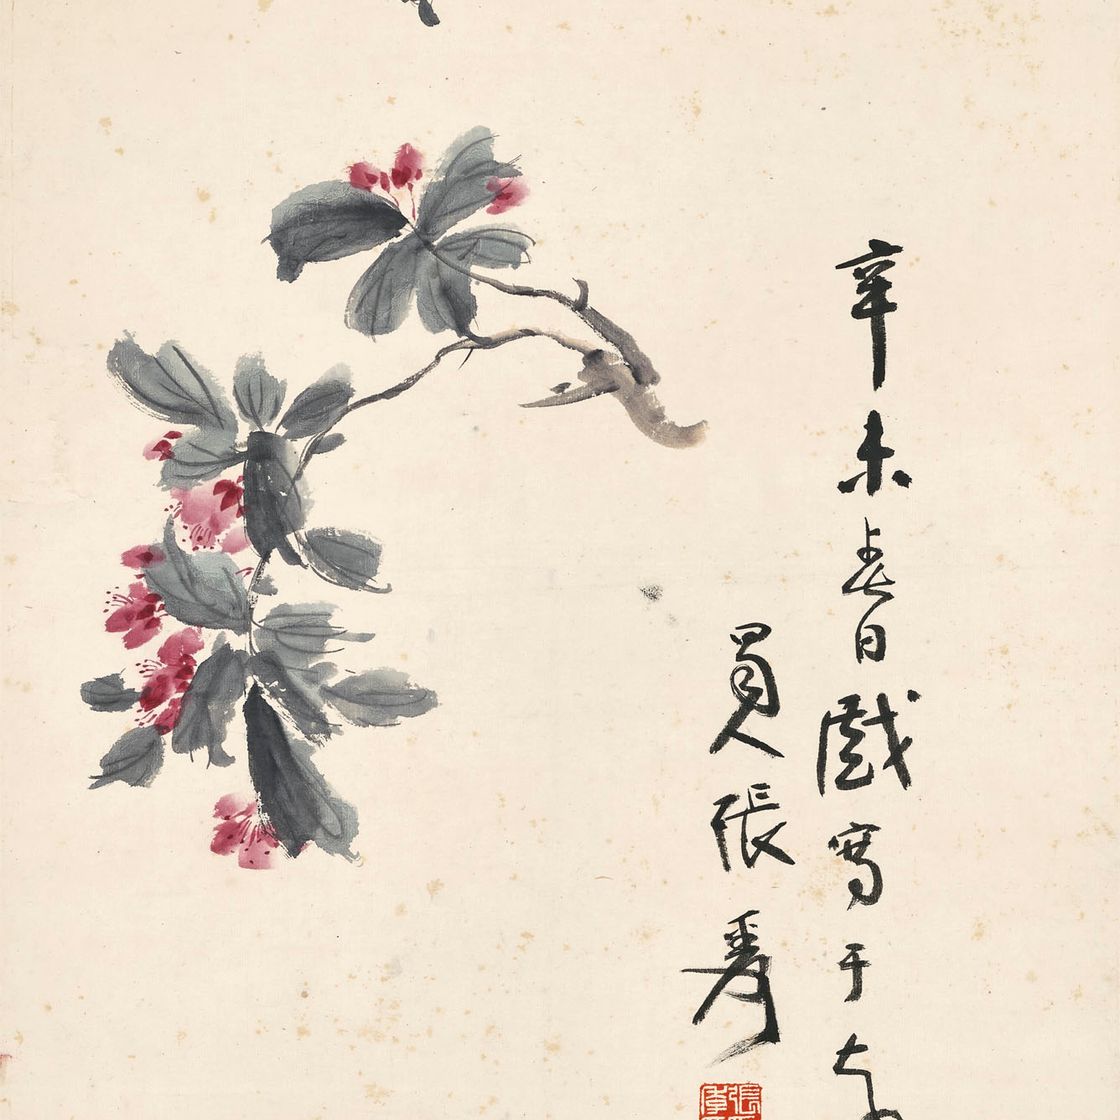 辛未春日戲寫于大
蜀人張爰
張